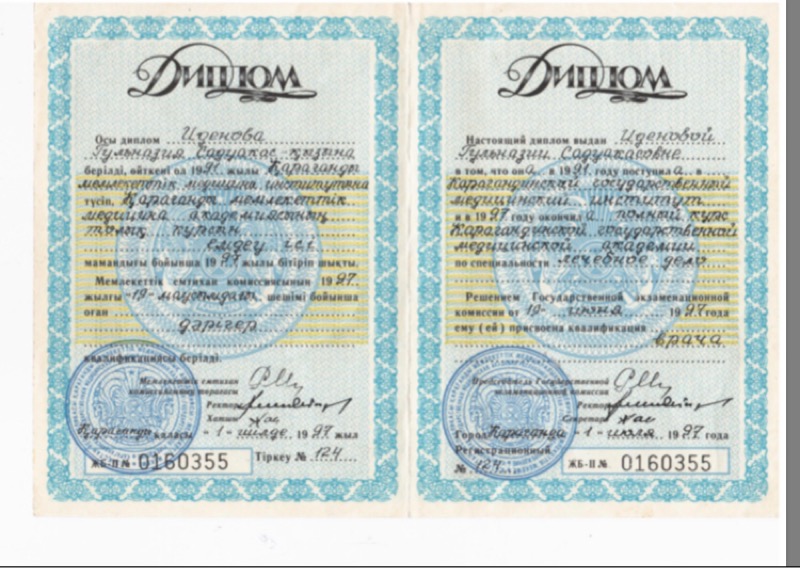 Диплом
Осы диплом Иденова
Гульназия Садуакас-қызына
берілді, өйткені ол 1991 жылы Қарағанды
мемлекеттік медицина институтына
түсіп, Қарағанды мемлекеттік
медицина академиясының
толық курсын
емдеу ісі
мамандығы бойынша 1997 жылы бітіріп шықты.
Мемлекеттік емтихан комиссиясының 1997
жылғы -19- маусымдағы шешімі бойынша
оған
дәрігер
квалификациясы берілді.
Мемлекеттік емтихан
комиссиясының төрағасы
Ректор
Хатшы
Қарағанды қаласы - 1 - шілде 1997 жыл
ЖБ-II № 0160355 Тіркеу № 124
Диплом
Настоящий диплом выдан Иденовой
Гульназии Садуакасовне
в том, что она в 1991 году поступила в
Карагандинский государственный
медицинский институт
и в 1997 году окончила полный курс
Карагандинской государственной
медицинской академии
по специальности лечебное дело
Решением Государственной экзаменационной
комиссии от 19 - июня 1997 года
ему (ей) присвоена квалификация
врача
Председатель Государственной
экзаменационной комиссии
Ректор
Секретарь
Город Караганда - 1 - июля 1997 года
Регистрационный
№ 124 ЖБ-II № 0160355